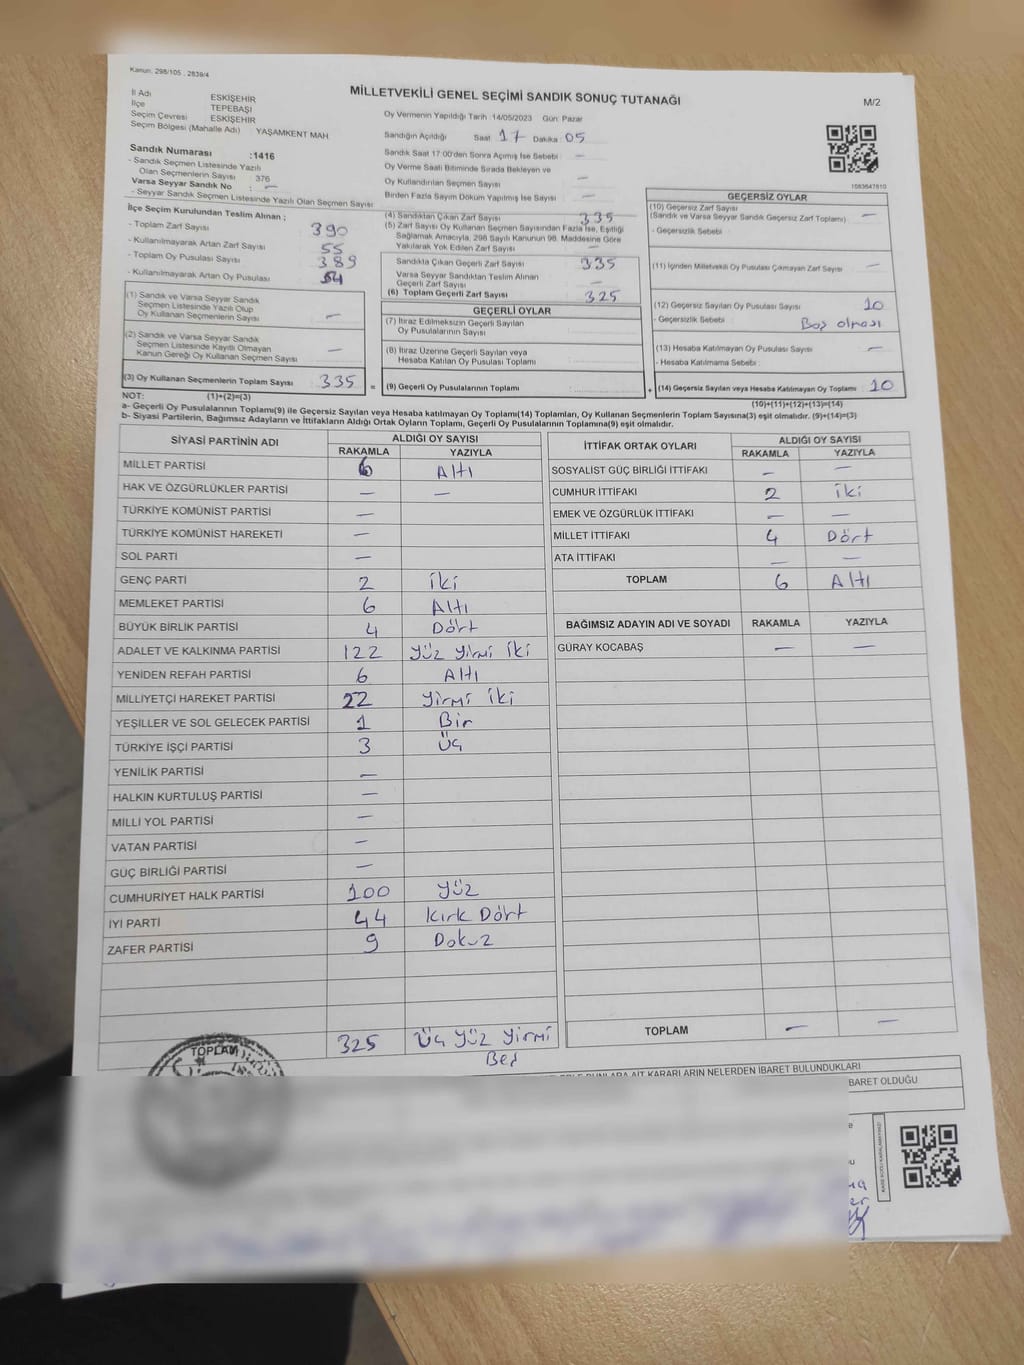 Kanun. 298/105 , 2839/4
MİLLETVEKİLİ GENEL SEÇİMİ SANDIK SONUÇ TUTANAĞI
M/2
İl Adı ESKİŞEHİR
İlçe TEPEBAŞI
Seçim Çevresi ESKİŞEHİR
Seçim Bölgesi (Mahalle Adı) YAŞAMKENT MAH.
Oy Vermenin Yapıldığı Tarih :14/05/2023 Gün: Pazar
Sandığın Açıldığı Saat : 17 Dakika : 05
Sandık Saat 17:00'den Sonra Açılmış İse Sebebi : —
Oy Verme Saati Bitiminde Sırada Bekleyen ve
Oy Kullandırılan Seçmen Sayısı —
Birden Fazla Sayım Döküm Yapılmış İse Sayısı —
1083647610
Sandık Numarası :1416
- Sandık Seçmen Listesinde Yazılı
Olan Seçmenlerin Sayısı 376
Varsa Seyyar Sandık No : —
- Seyyar Sandık Seçmen Listesinde Yazılı Olan Seçmen Sayısı
İlçe Seçim Kurulundan Teslim Alınan ;
- Toplam Zarf Sayısı 390
- Kullanılmayarak Artan Zarf Sayısı 55
- Toplam Oy Pusulası Sayısı 389
- Kullanılmayarak Artan Oy Pusulası 54
(1) Sandık ve Varsa Seyyar Sandık
Seçmen Listesinde Yazılı Olup
Oy Kullanan Seçmenlerin Sayısı —
(2) Sandık ve Varsa Seyyar Sandık
Seçmen Listesinde Kayıtlı Olmayan
Kanun Gereği Oy Kullanan Seçmen Sayısı —
(3) Oy Kullanan Seçmenlerin Toplam Sayısı 335
(1)+(2)=(3)
(4) Sandıktan Çıkan Zarf Sayısı 335
(5) Zarf Sayısı Oy Kullanan Seçmen Sayısından Fazla İse, Eşitliği
Sağlamak Amacıyla, 298 Sayılı Kanunun 98. Maddesine Göre
Yakılarak Yok Edilen Zarf Sayısı —
Sandıkta Çıkan Geçerli Zarf Sayısı 335
Varsa Seyyar Sandıktan Teslim Alınan
Geçerli Zarf Sayısı —
(6) Toplam Geçerli Zarf Sayısı 325
GEÇERLİ OYLAR
(7) İtiraz Edilmeksizin Geçerli Sayılan
Oy Pusulalarının Sayısı
(8) İtiraz Üzerine Geçerli Sayılan veya
Hesaba Katılan Oy Pusulası Toplamı
= (9) Geçerli Oy Pusulalarının Toplamı
GEÇERSİZ OYLAR
(10) Geçersiz Zarf Sayısı —
(Sandık ve Varsa Seyyar Sandık Geçersiz Zarf Toplamı)
- Geçersizlik Sebebi :
(11) İçinden Milletvekili Oy Pusulası Çıkmayan Zarf Sayısı —
(12) Geçersiz Sayılan Oy Pusulası Sayısı 10
- Geçersizlik Sebebi : Boş olması
(13) Hesaba Katılmayan Oy Pusulası Sayısı —
- Hesaba Katılmama Sebebi :
+ (14) Geçersiz Sayılan veya Hesaba Katılmayan Oy Toplamı 10
(10)+(11)+(12)+(13)=(14)
NOT:
a- Geçerli Oy Pusulalarının Toplamı(9) ile Geçersiz Sayılan veya Hesaba katılmayan Oy Toplamı(14) Toplamları, Oy Kullanan Seçmenlerin Toplam Sayısına(3) eşit olmalıdır. (9)+(14)=(3)
b- Siyasi Partilerin, Bağımsız Adayların ve İttifakların Aldığı Ortak Oyların Toplamı, Geçerli Oy Pusulalarının Toplamına(9) eşit olmalıdır.
SİYASİ PARTİNİN ADI ALDIĞI OY SAYISI
RAKAMLA YAZIYLA
MİLLET PARTİSİ 6 Altı
HAK VE ÖZGÜRLÜKLER PARTİSİ — —
TÜRKİYE KOMÜNİST PARTİSİ —
TÜRKİYE KOMÜNİST HAREKETİ —
SOL PARTİ —
GENÇ PARTİ 2 iki
MEMLEKET PARTİSİ 6 Altı
BÜYÜK BİRLİK PARTİSİ 4 Dört
ADALET VE KALKINMA PARTİSİ 122 Yüz Yirmi iki
YENİDEN REFAH PARTİSİ 6 Altı
MİLLİYETÇİ HAREKET PARTİSİ 22 Yirmi iki
YEŞİLLER VE SOL GELECEK PARTİSİ 1 Bir
TÜRKİYE İŞÇİ PARTİSİ 3 Üç
YENİLİK PARTİSİ —
HALKIN KURTULUŞ PARTİSİ —
MİLLİ YOL PARTİSİ —
VATAN PARTİSİ —
GÜÇ BİRLİĞİ PARTİSİ —
CUMHURİYET HALK PARTİSİ 100 Yüz
İYİ PARTİ 44 Kırk Dört
ZAFER PARTİSİ 9 Dokuz
TOPLAM 325 Üç Yüz Yirmi
Beş
İTTİFAK ORTAK OYLARI ALDIĞI OY SAYISI
RAKAMLA YAZIYLA
SOSYALİST GÜÇ BİRLİĞİ İTTİFAKI — —
CUMHUR İTTİFAKI 2 iki
EMEK VE ÖZGÜRLÜK İTTİFAKI — —
MİLLET İTTİFAKI 4 Dört
ATA İTTİFAKI — —
TOPLAM 6 Altı
BAĞIMSIZ ADAYIN ADI VE SOYADI RAKAMLA YAZIYLA
GÜRAY KOCABAŞ — —
TOPLAM — —
AİT KARARLARIN NELERDEN İBARET BULUNDUKLARI
İBARET OLDUĞU